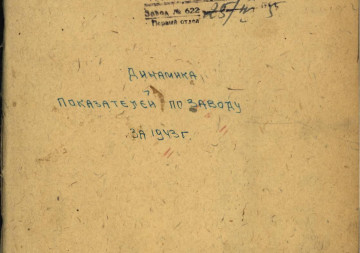 Завод № 622
Первый отдел
Динамика
показателей по заводу
за 1943 г.